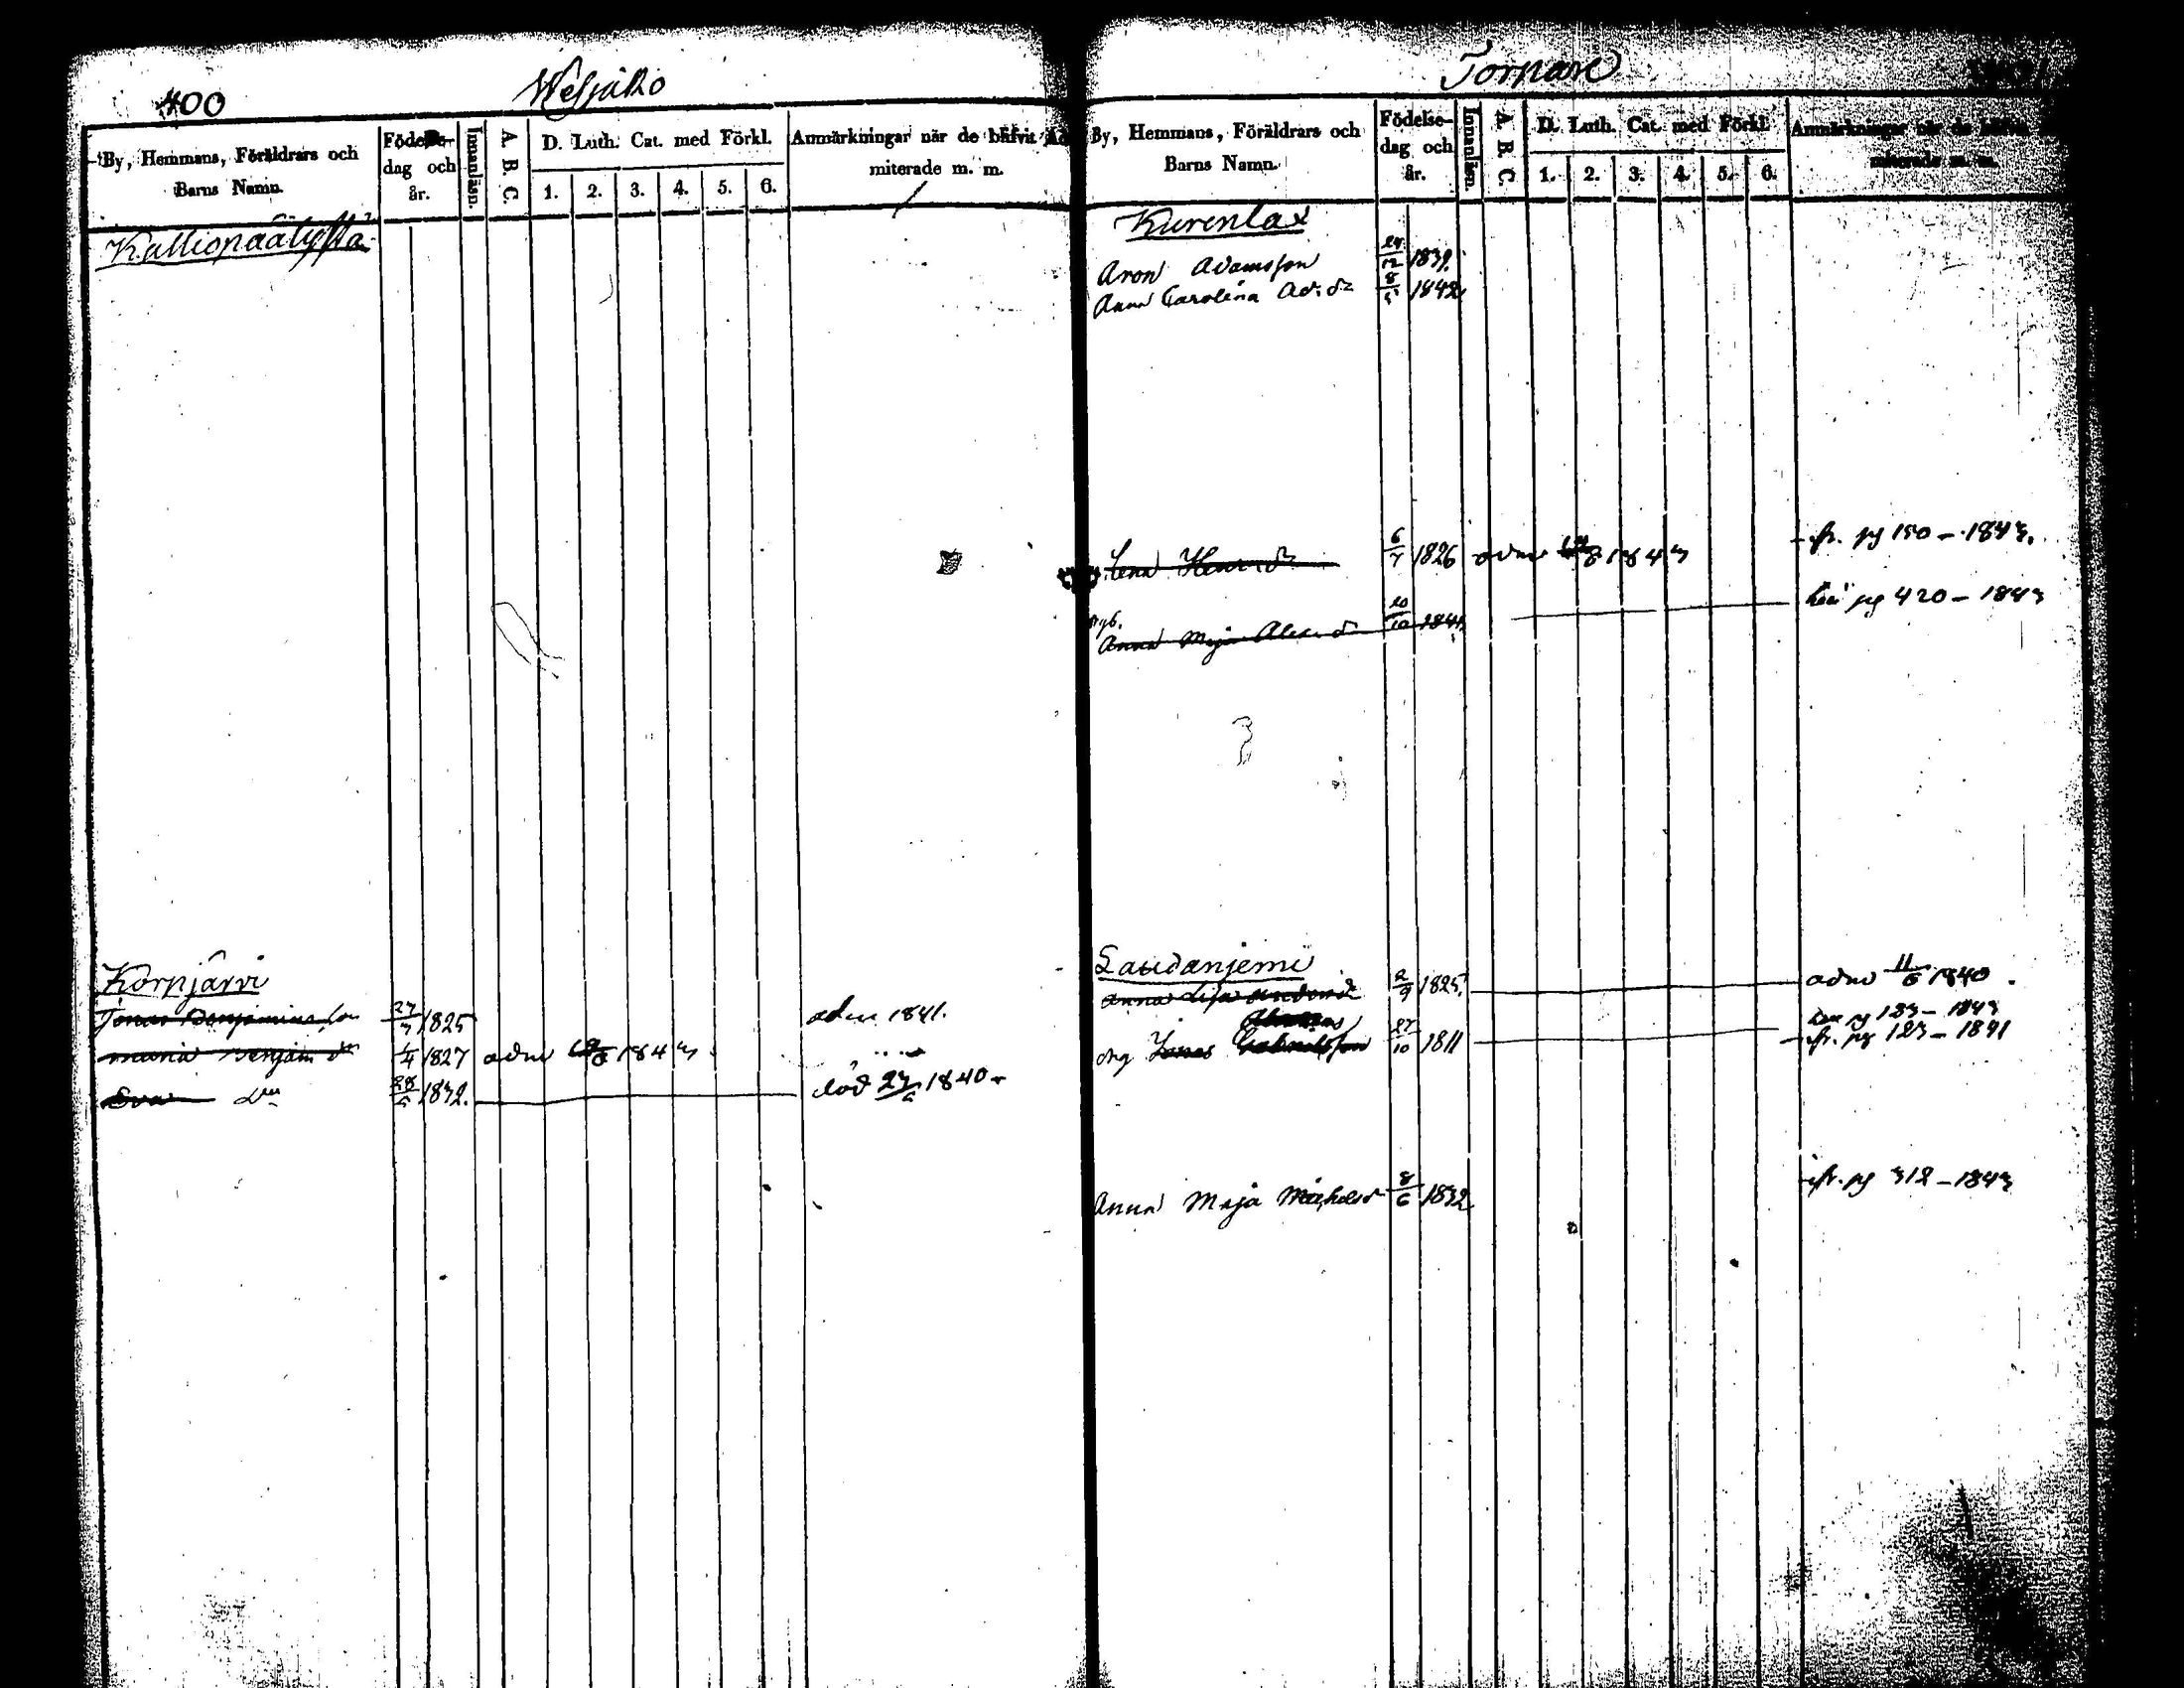 400
Wesjako
By, Hemmans, Föräldrars och
Barns Namn.
Födelse-
dag och
år.
Innanläsn.
A. B. C.
D. Luth. Cat. med Förkl.
1. 2. 3. 4. 5. 6.
Anmärkningar när de blifvit Ad
miterade m. m.
Korpjärvi
Jonas Benjaminsson 27/3 1825 adm 1841.
Maria Benjam dr 1/4 1827 adm 1843
Eva 1832. död 1840
Torpare
By, Hemmans, Föräldrars och
Barns Namn.
Födelse-
dag och
år.
Innanläsn.
A. B. C.
D. Luth. Cat. med Förkl.
1. 2. 3. 4. 5. 6.
Anmärkningar när de blifvit
miterade m. m.
Kurenlax
Aron Adamsson 24/12 1839.
Anna Carolina Ad. dr 8/5 1842
Lena Henr. dr 6/7 1826 adm 1843 fr. pg 190 - 1843.
Anna Maja 20/10 1841. pg 420 - 1843
Laudanjemi
Anna Lisa 2/9 1825. adm 11/6 1840.
pg 123 - 1843
drg Jonas Gabrielsson 27/10 1811 fr. pg 123 - 1841
Anna Maja 8/6 1832 fr. pg 312 - 1843